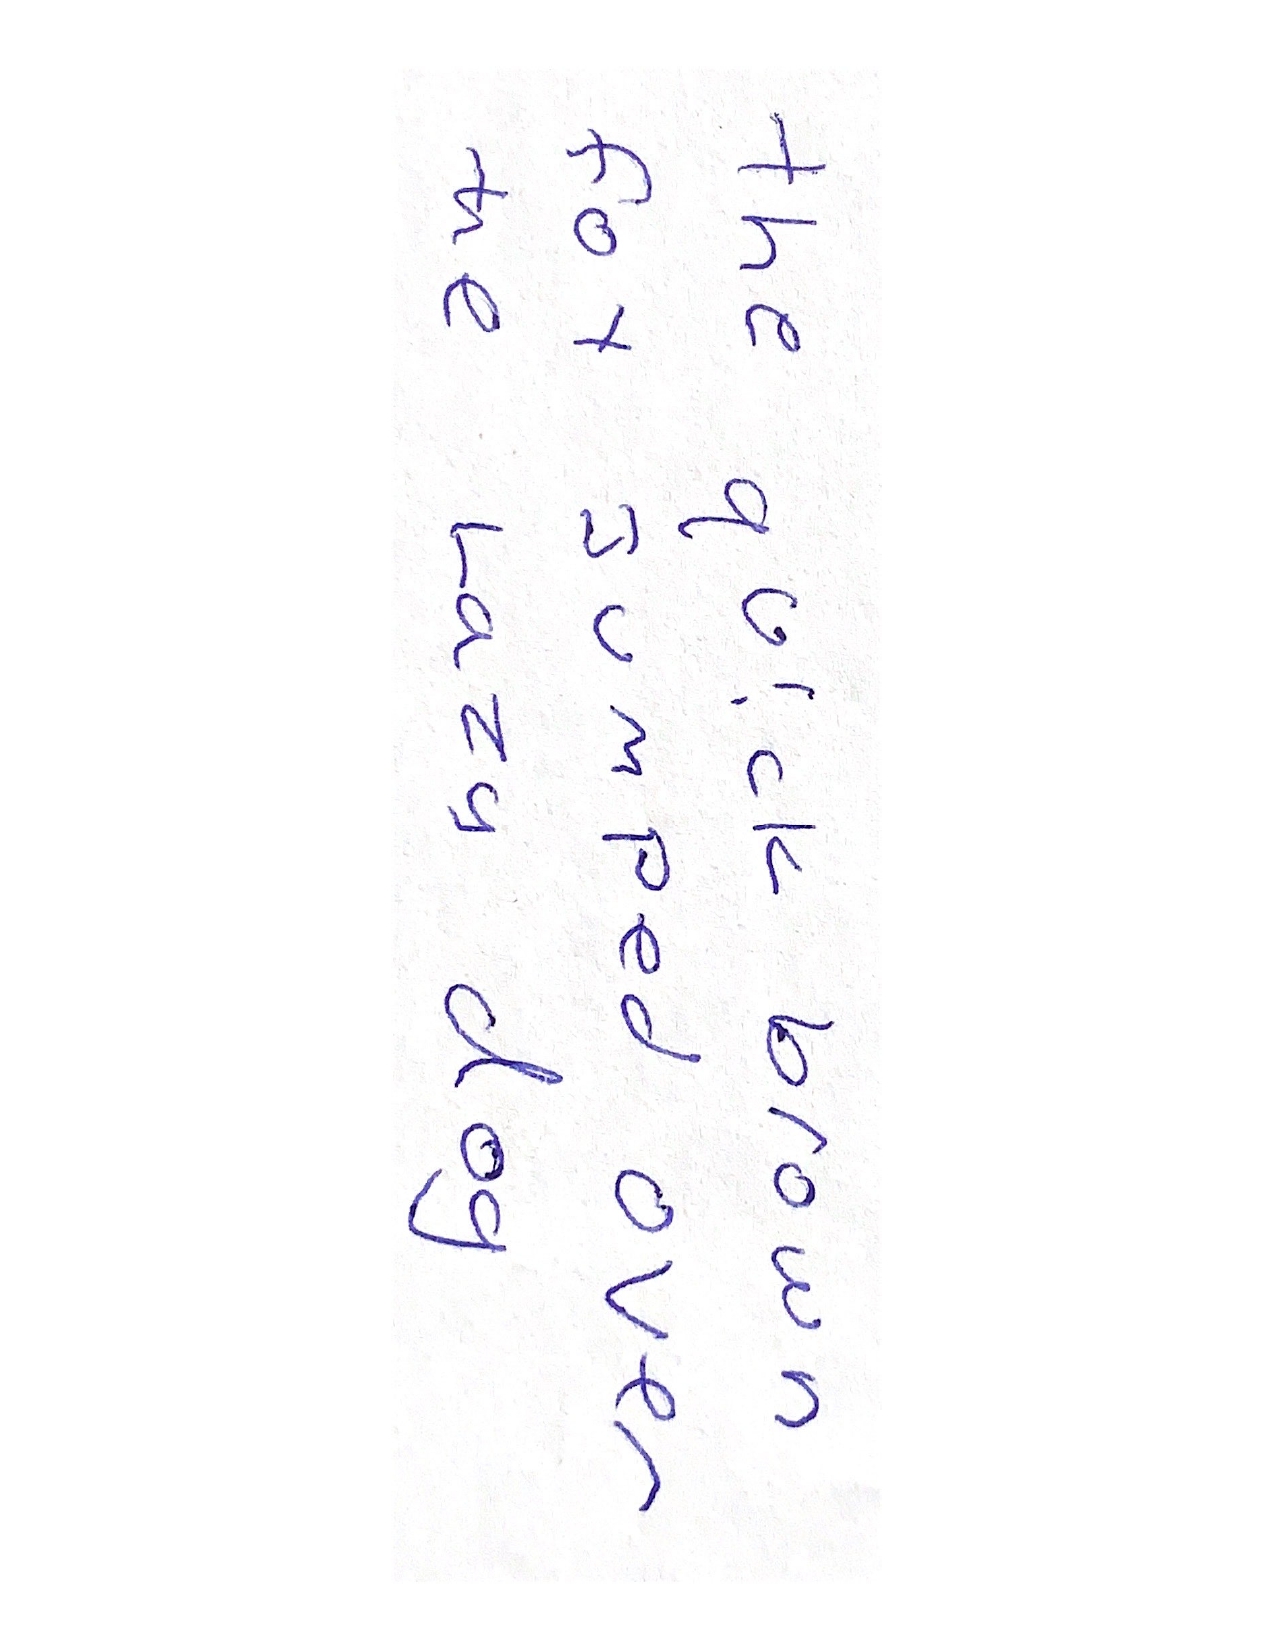 the quick brown
fox jumped over
the Lazy dog